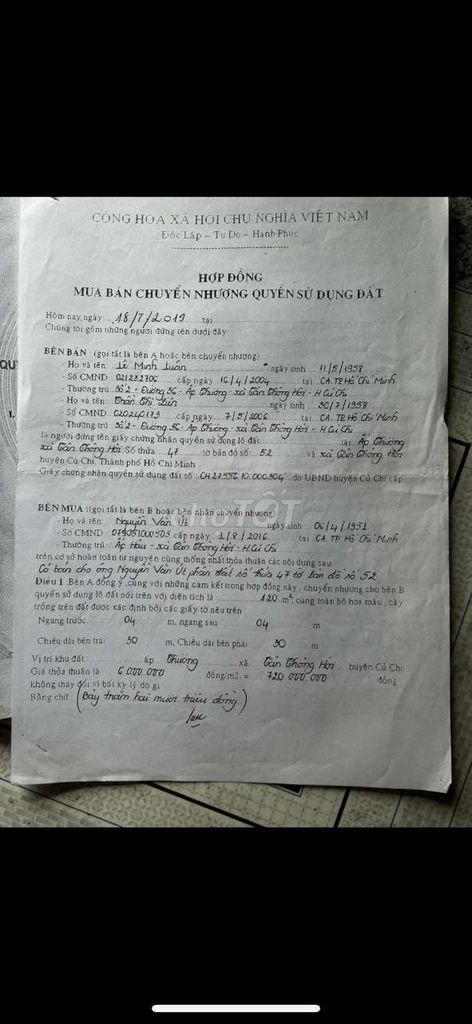 CỘNG HÒA XÃ HỘI CHỦ NGHĨA VIỆT NAM
Độc Lập – Tự Do – Hạnh Phúc
HỢP ĐỒNG
MUA BÁN CHUYỂN NHƯỢNG QUYỀN SỬ DỤNG ĐẤT
Hôm nay ngày 18/7/2019 tại
Chúng tôi gồm những người đứng tên dưới đây:
BÊN BÁN (gọi tắt là bên A hoặc bên chuyển nhượng)
- Họ và tên: Lê Minh Luân ngày sinh 11/5/1958
- Số CMND 021232706 cấp ngày 16/4/2004 tại CA.TP Hồ Chí Minh
- Thường trú Số 2 - Đường 36 - Ấp Thượng - xã Tân Thông Hội - H.Củ Chi
- Họ và tên: Trần Thị ngày sinh 30/7/1958
- Số CMND 020240173 cấp ngày 7/5/2006 tại CA.TP Hồ Chí Minh
- Thường trú Số 2 - Đường 36 - Ấp Thượng - xã Tân Thông Hội - H.Củ Chi
là người đứng tên giấy chứng nhận quyền sử dụng lô đất tại Ấp Thượng
xã Tân Thông Hội Số thửa 47 tờ bản đồ số: 52 và xã Tân Thông Hội
huyện Củ Chi, Thành phố Hồ Chí Minh
Giấy chứng nhận quyền sử dụng đất số do UBND huyện Củ Chi cấp
BÊN MUA (gọi tắt là bên B hoặc bên nhận chuyển nhượng)
- Họ và tên: Nguyễn Văn Út ngày sinh 06/4/1951
- Số CMND 079051000505 cấp ngày 1/8/2016 tại CA TP Hồ Chí Minh
- Thường trú: Ấp Hậu - xã Tân Thông Hội - H.Củ Chi
trên cơ sở hoàn toàn tự nguyện cùng thống nhất thỏa thuận các nội dung sau
Có bán cho ông Nguyễn Văn Út phần đất số thửa 47 tờ bản đồ số 52
Điều 1 Bên A đồng ý, cùng với những cam kết trong hợp đồng này, chuyển nhượng cho bên B
quyền sử dụng lô đất nói trên với diện tích là 120 m², cùng toàn bộ hoa màu, cây
trồng trên đất được xác định bởi các giấy tờ nêu trên
Ngang trước 04 m, ngang sau 04 m
Chiều dài bên trái 30 m, Chiều dài bên phải 30 m
Vị trí khu đất ấp Thượng xã Tân Thông Hội huyện Củ Chi
Giá thỏa thuận là 6 000 000 đồng/m2 = 720 000 000 đồng
không thay đổi vì bất kỳ lý do gì
Bằng chữ (Bảy trăm hai mươi triệu đồng)